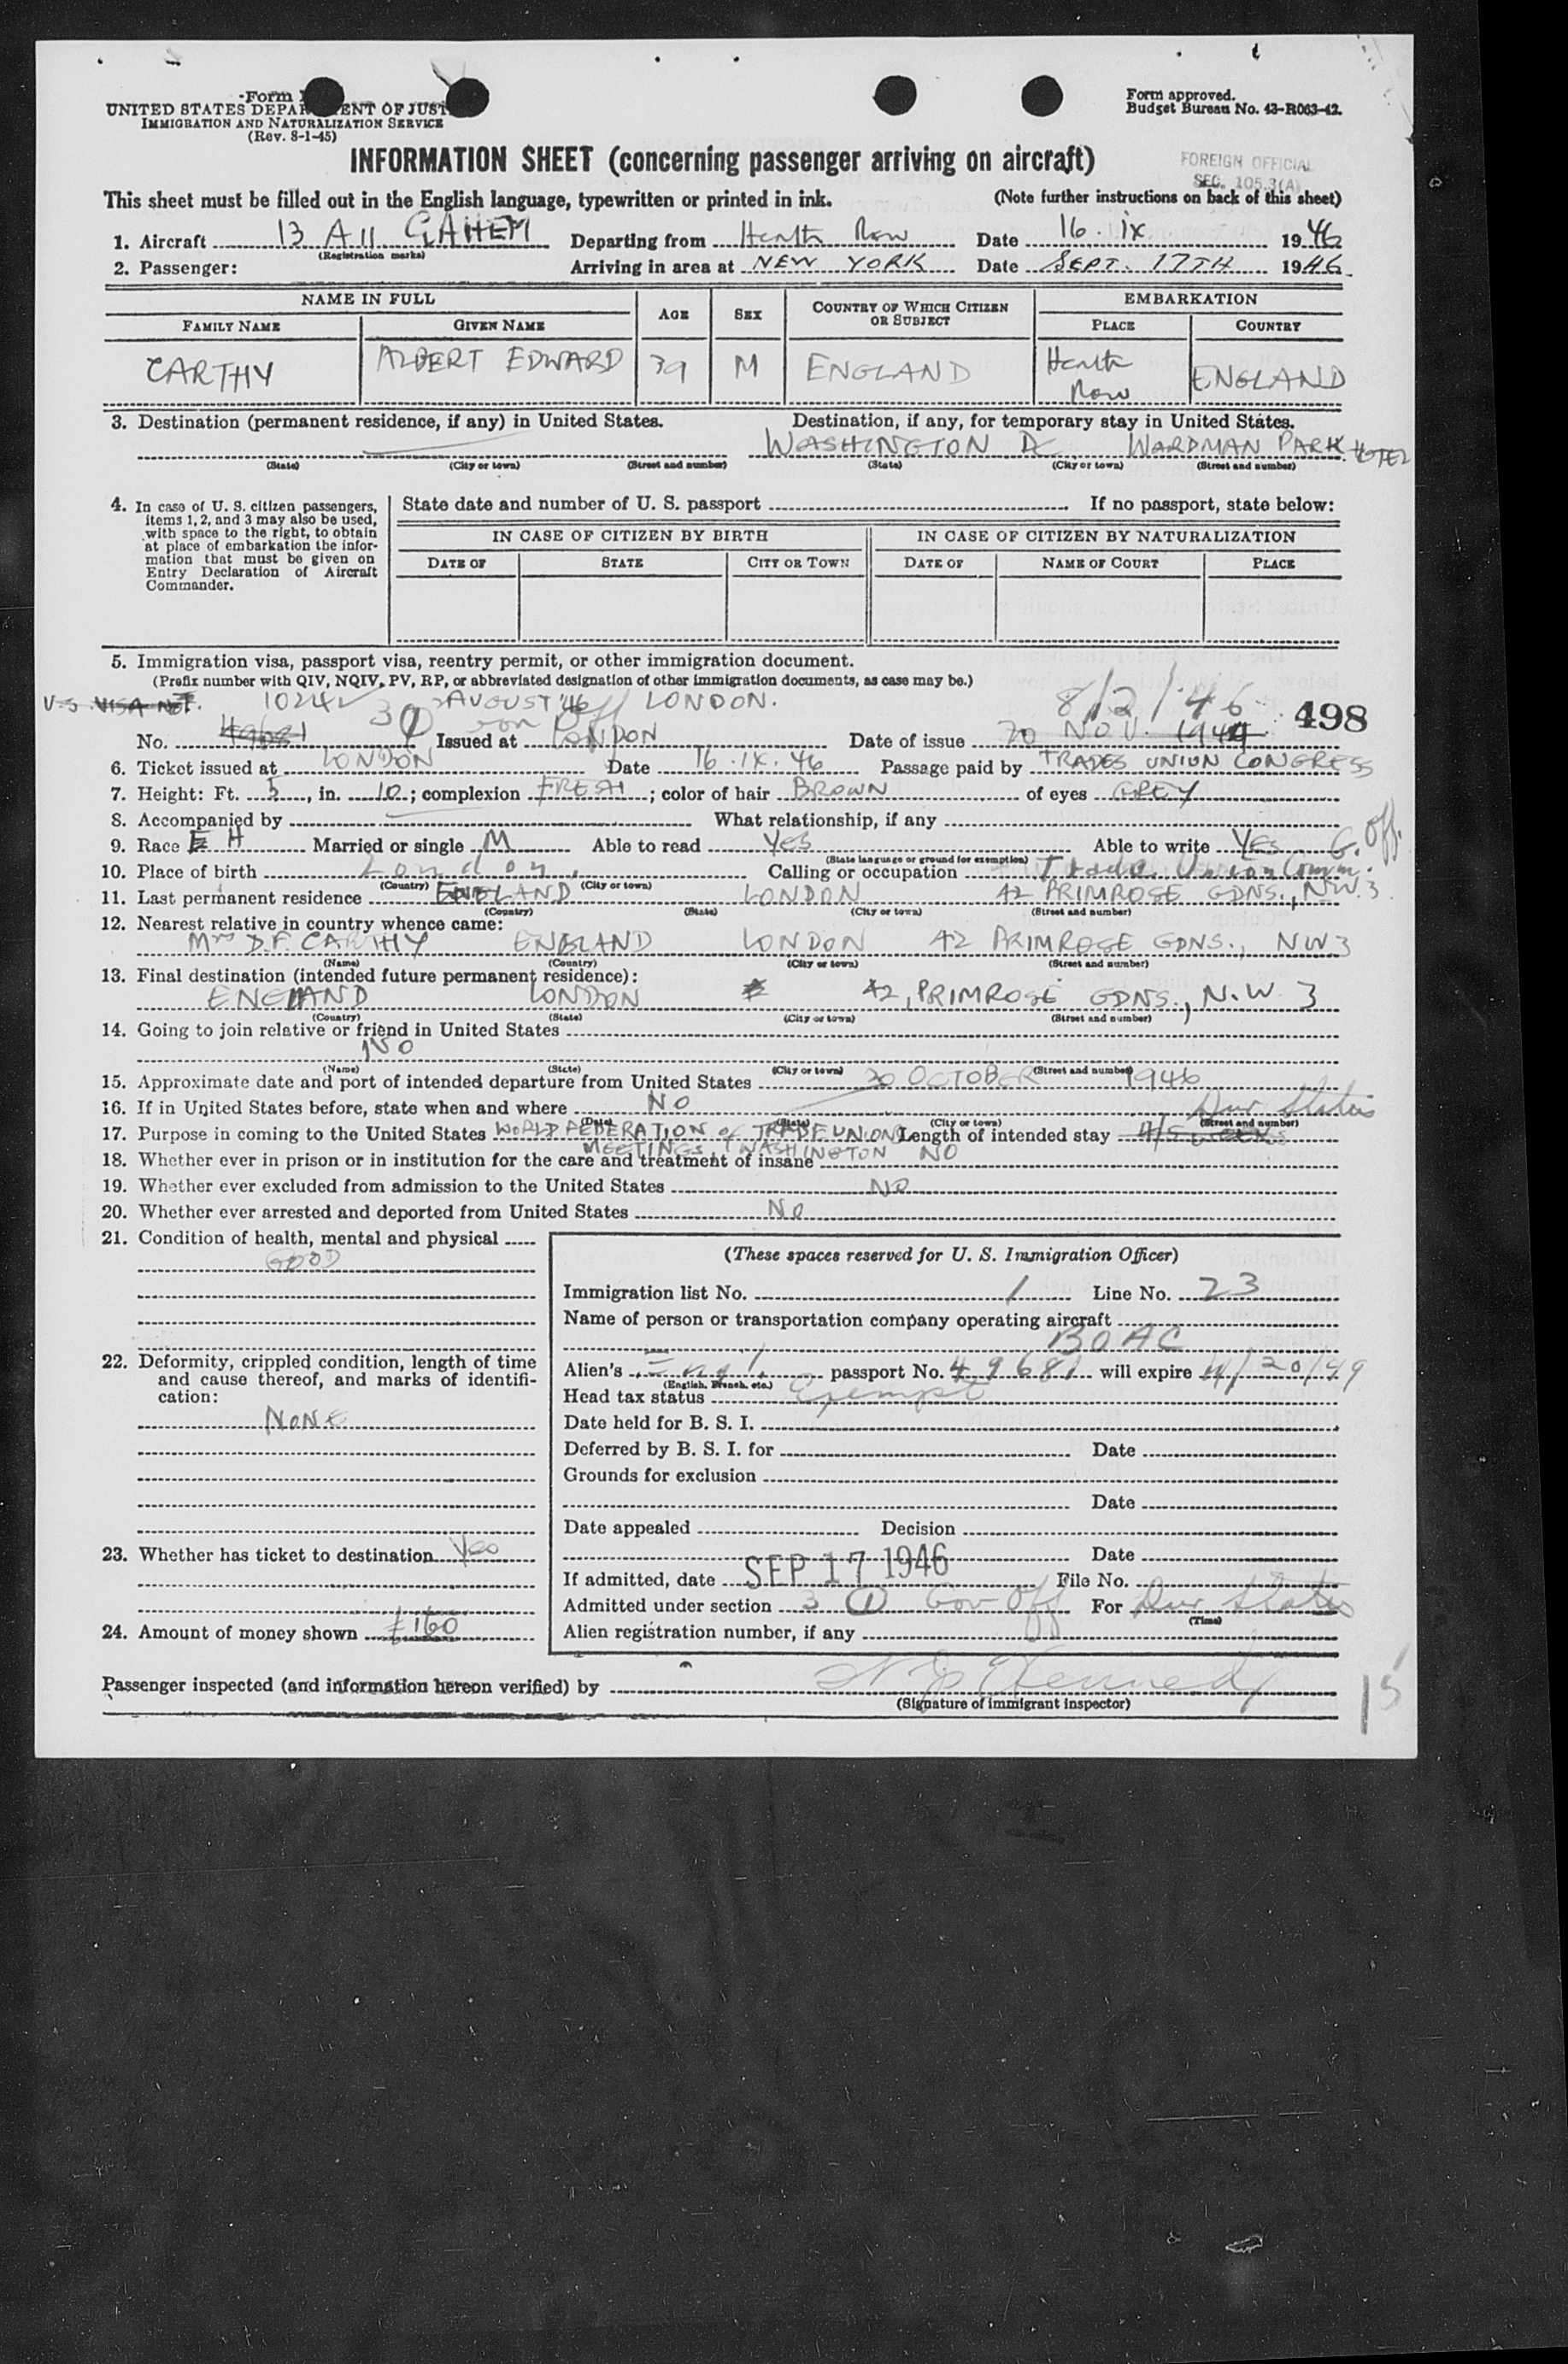 Form
UNITED STATES DEPARTMENT OF JUST
IMMIGRATION AND NATURALIZATION SERVICE
(Rev. 8-1-45)
Form approved.
Budget Bureau No. 43-R063-42.
INFORMATION SHEET (concerning passenger arriving on aircraft)
FOREIGN OFFICIAL
SEC. 105.3(A)
This sheet must be filled out in the English language, typewritten or printed in ink. (Note further instructions on back of this sheet)
1. Aircraft 13 A 11 GAHEM Departing from Heath Row Date 16 . ix 1946
(Registration marks)
2. Passenger: Arriving in area at NEW YORK Date SEPT. 17TH 1946
NAME IN FULL AGE SEX COUNTRY OF WHICH CITIZEN OR SUBJECT EMBARKATION
FAMILY NAME GIVEN NAME PLACE COUNTRY
CARTHY ALBERT EDWARD 39 M ENGLAND Heath Row ENGLAND
3. Destination (permanent residence, if any) in United States. Destination, if any, for temporary stay in United States.
WASHINGTON DC WARDMAN PARK HOTEL
(State) (City or town) (Street and number) (State) (City or town) (Street and number)
4. In case of U. S. citizen passengers, items 1, 2, and 3 may also be used, with space to the right, to obtain at place of embarkation the information that must be given on Entry Declaration of Aircraft Commander.
State date and number of U. S. passport If no passport, state below:
IN CASE OF CITIZEN BY BIRTH IN CASE OF CITIZEN BY NATURALIZATION
DATE OF STATE CITY OR TOWN DATE OF NAME OF COURT PLACE
5. Immigration visa, passport visa, reentry permit, or other immigration document.
(Prefix number with QIV, NQIV, PV, RP, or abbreviated designation of other immigration documents, as case may be.)
U.S. VISA NO. 10242 AUGUST '46 LONDON. 8/2/46 498
No. 49681 Issued at LONDON Date of issue 20 NOV. 1944
6. Ticket issued at LONDON Date 16.IX.46 Passage paid by TRADES UNION CONGRESS
7. Height: Ft. 5, in. 10; complexion FRESH; color of hair BROWN of eyes GREY
8. Accompanied by What relationship, if any
9. Race E H Married or single M Able to read Yes Able to write YES G. Off.
(State language or ground for exemption)
10. Place of birth London, Calling or occupation Trade Union Comm.
(Country) (City or town)
11. Last permanent residence ENGLAND LONDON 42 PRIMROSE GDNS., NW.3
(Country) (State) (City or town) (Street and number)
12. Nearest relative in country whence came:
Mrs D.F. CARTHY ENGLAND LONDON 42 PRIMROSE GDNS., NW3
(Name) (Country) (City or town) (Street and number)
13. Final destination (intended future permanent residence):
ENGLAND LONDON 42, PRIMROSE GDNS., N.W 3
(Country) (State) (City or town) (Street and number)
14. Going to join relative or friend in United States
NO
(Name) (State) (City or town) (Street and number)
15. Approximate date and port of intended departure from United States 20 OCTOBER 1946
16. If in United States before, state when and where NO
(Date) (State) (City or town) (Street and number)
Dur Status
17. Purpose in coming to the United States WORLD FEDERATION of TRADE UNION Length of intended stay 4/5 WEEKS
MEETINGS, WASHINGTON
18. Whether ever in prison or in institution for the care and treatment of insane NO
19. Whether ever excluded from admission to the United States NO
20. Whether ever arrested and deported from United States NO
21. Condition of health, mental and physical
GOOD
22. Deformity, crippled condition, length of time and cause thereof, and marks of identification:
NONE
23. Whether has ticket to destination Yes
24. Amount of money shown £160
(These spaces reserved for U. S. Immigration Officer)
Immigration list No. 1 Line No. 23
Name of person or transportation company operating aircraft
BOAC
Alien's Engl. passport No. 49681 will expire 11/20/49
(English, French, etc.)
Head tax status Exempt
Date held for B. S. I.
Deferred by B. S. I. for Date
Grounds for exclusion
Date
Date appealed Decision
Date
If admitted, date SEP 17 1946 File No.
Admitted under section 3 (1) Gov Off For Dur Status
(Time)
Alien registration number, if any
Passenger inspected (and information hereon verified) by
(Signature of immigrant inspector)
15